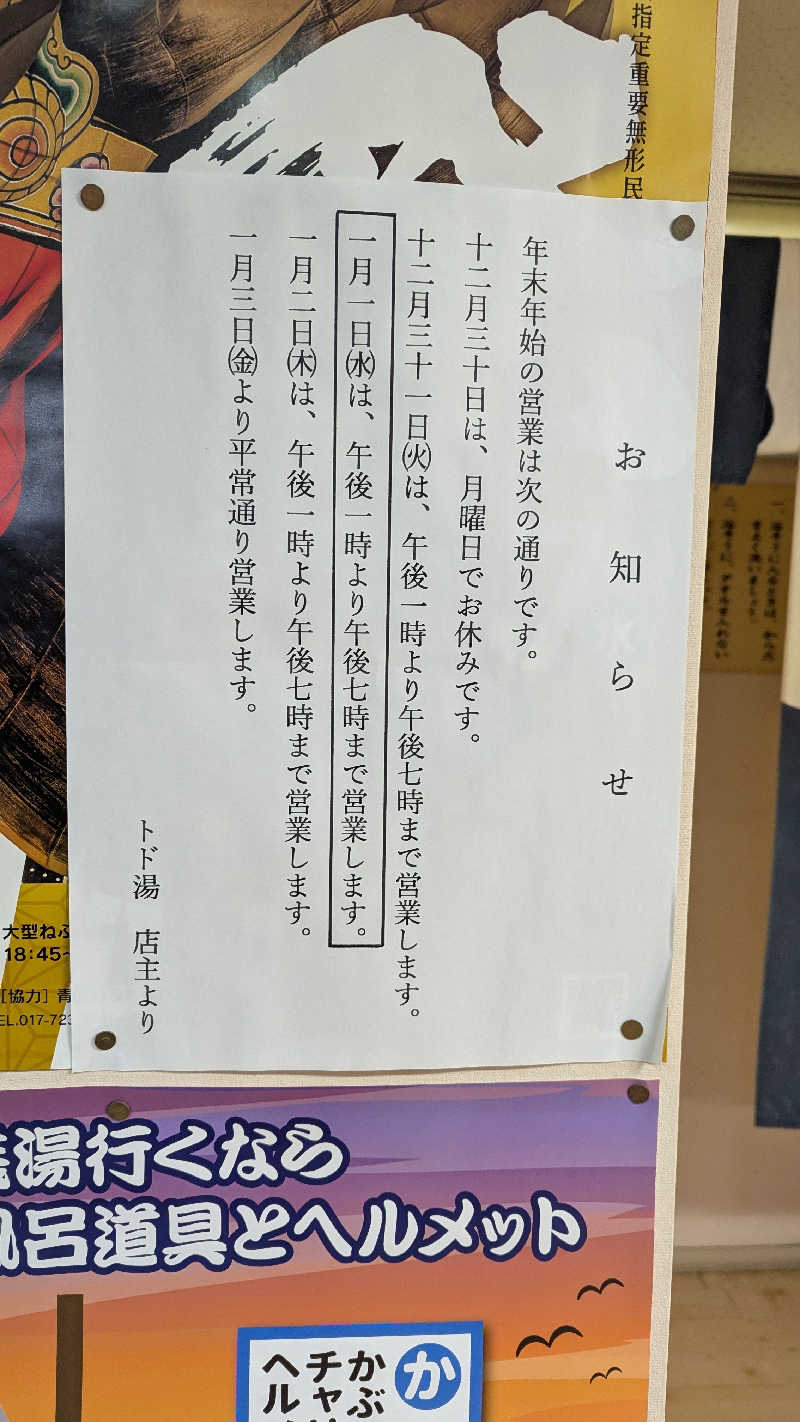 指定重要無形民
お知らせ
年末年始の営業は次の通りです。
十二月三十日は、月曜日でお休みです。
十二月三十一日㈫は、午後一時より午後七時まで営業します。
一月一日㈬は、午後一時より午後七時まで営業します。
一月二日㈭は、午後一時より午後七時まで営業します。
一月三日㈮より平常通り営業します。
トド湯 店主より
大型ねぶ
18:45~
［協力］青
EL.017-723
湯行くなら
呂道具とヘルメット
か
かぶ
チャ
ヘル